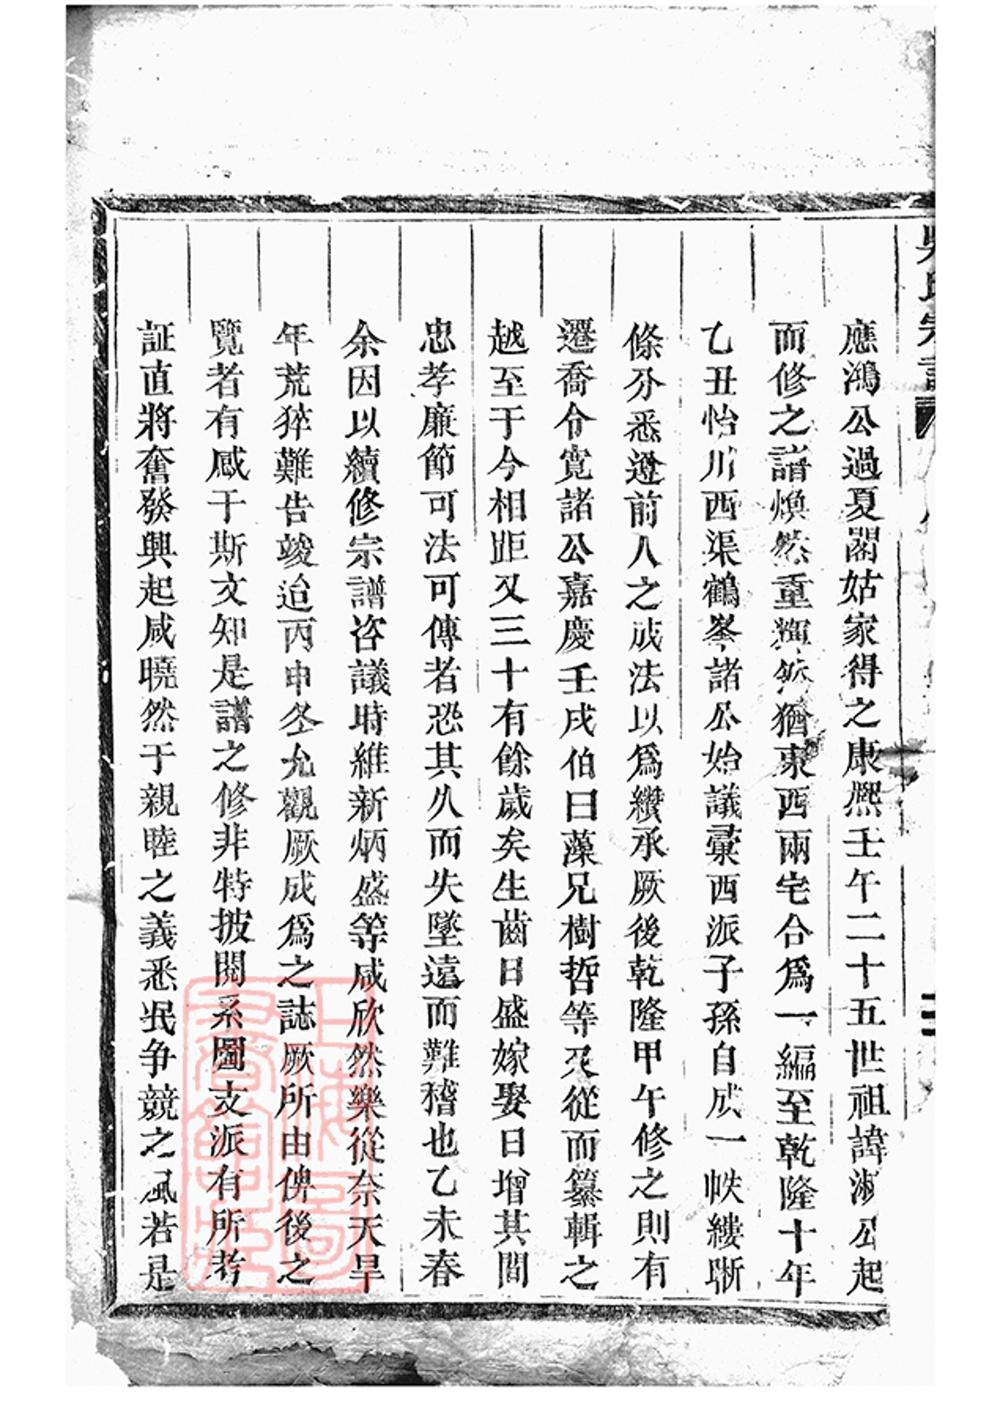 吳氏宗譜
應鴻公過夏閣姑家得之康熈壬午二十五世祖諱淑公起
而修之譜煥然重輝然猶東西兩宅合爲一編至乾隆十年
乙丑怡川西渠鶴峯諸公始議彙西派子孫自成一帙縷晰
條分悉遵前人之成法以爲纘承厥後乾隆甲午修之則有
遷喬令寛諸公嘉慶壬戌伯曰藻兄樹哲等又從而纂輯之
越至于今相距又三十有餘歲矣生齒日盛嫁娶日增其間
忠孝廉節可法可傳者恐其久而失墜遠而難稽也乙未春
余因以續修宗譜咨議時維新炳盛等咸欣然樂從奈天旱
年荒猝難告竣迨丙申冬允觀厥成爲之誌厥所由俾後之
覽者有感于斯文知是譜之修非特披閱系圖支派有所考
証直將奮發興起咸曉然于親睦之義悉泯争競之風若是
上海圖書館藏